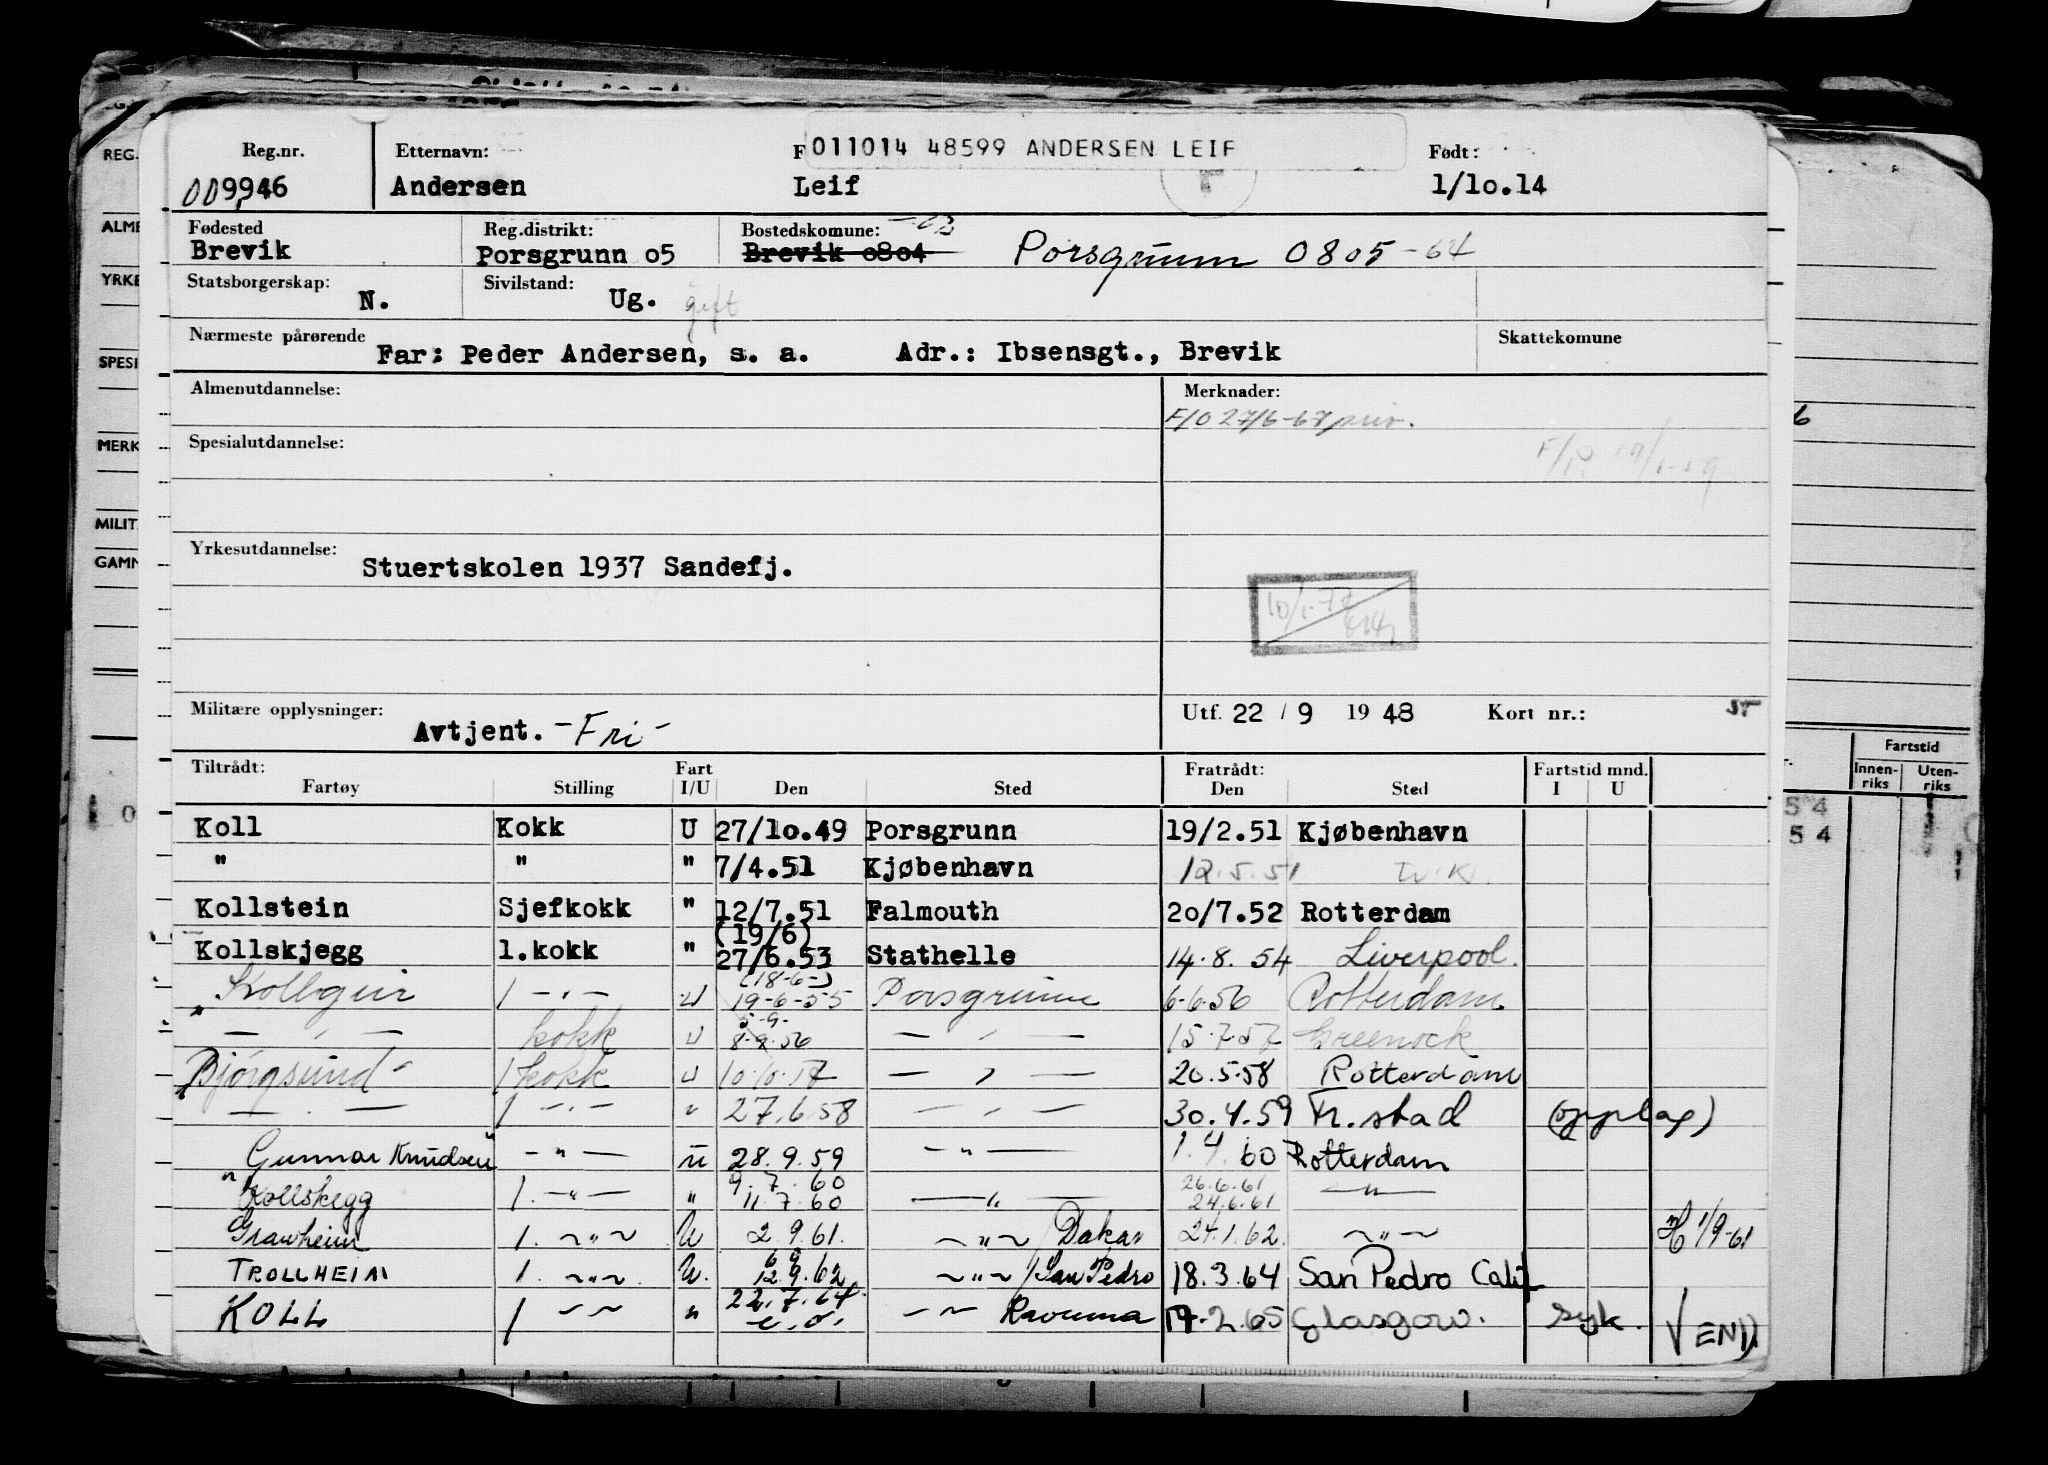 Reg.nr. Etternavn: F 011014 48599 ANDERSEN LEIF Født:
009946 Andersen Leif 1/10.14
Fødested Reg.distrikt: Bostedskomune:
Brevik Porsgrunn 05 Brevik 0804 Porsgrunn 0805-64
Statsborgerskap: N. Sivilstand: Ug. gift
Nærmeste pårørende Far: Peder Andersen, s. a. Adr.: Ibsensgt., Brevik Skattekomune
Almenutdannelse: Merknader:
F/O 27/6-67
Spesialutdannelse: 19/1-59
Yrkesutdannelse: Stuertskolen 1937 Sandefj.
Militære opplysninger: Avtjent. -Fri- Utf. 22 / 9 1948 Kort nr.:
Tiltrådt: Fart Fratrådt: Fartstid mnd.
Fartøy Stilling I/U Den Sted Den Sted I U
Koll Kokk U 27/10.49 Porsgrunn 19/2.51 Kjøbenhavn
" " " 7/4.51 Kjøbenhavn 12.5.51
Kollstein Sjefkokk " 12/7.51 Falmouth 20/7.52 Rotterdam
(19/6)
Kollskjegg 1.kokk " 27/6.53 Stathelle 14.8.54 Liverpool.
(18-6-)
Kollgeir 1 -"- U 19-6-55 Porsgrunn 6-6.56 Rotterdam
5-9-
— " — kokk U 8-9.56 — " — 15.7.57 Greenock
Bjørgsund 1 kokk U 10.10.57 — " — 20.5.58 Rotterdam
— " — 1 -"- " 27.6.58 — " — 30.4.59 Fr.stad (opplag)
Gunnar Knudsen -"- U 28.9.59 -"- 1.4.60 Rotterdam
9.7.60 26.6.61
"Kollskegg 1. -"- " 11.7.60 -"- 24.6.61 -"-
Granheim 1. -"- U 2.9.61. -"- / Dakar 24.1.62. -"- 1/9-61
TROLLHEIM 1. -"- U. 12.9.62 -"- / San Pedro 18.3.64 San Pedro Calif
22.7.64
KOLL 1 -"- " -"- Ravenna 19.2.65 Glasgow. Syk. VEND
REG.
ALME
YRKE
SPESI
MERK
MILIT
GAMN
Fartstid
Innen-
riks
Uten-
riks
54
54